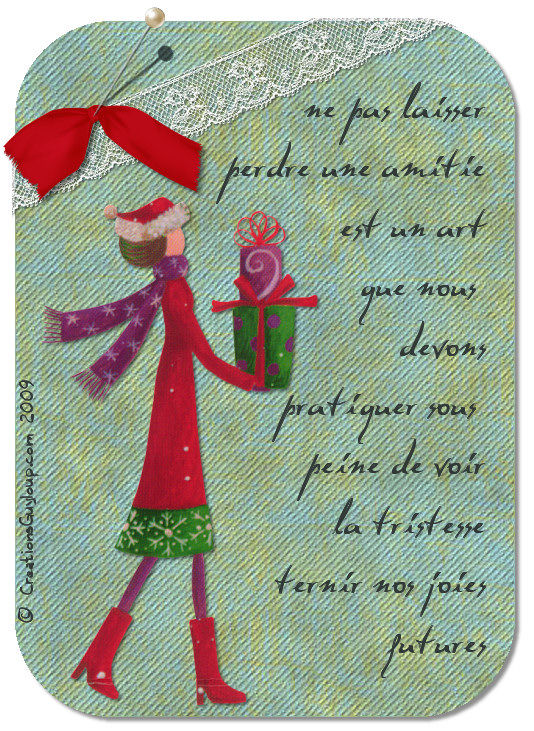 ne pas laisser
perdre une amitie
est un art
que nous
devons
pratiquer sous
peine de voir
la tristesse
ternir nos joies
futures
© CreationsGuyloup.com 2009